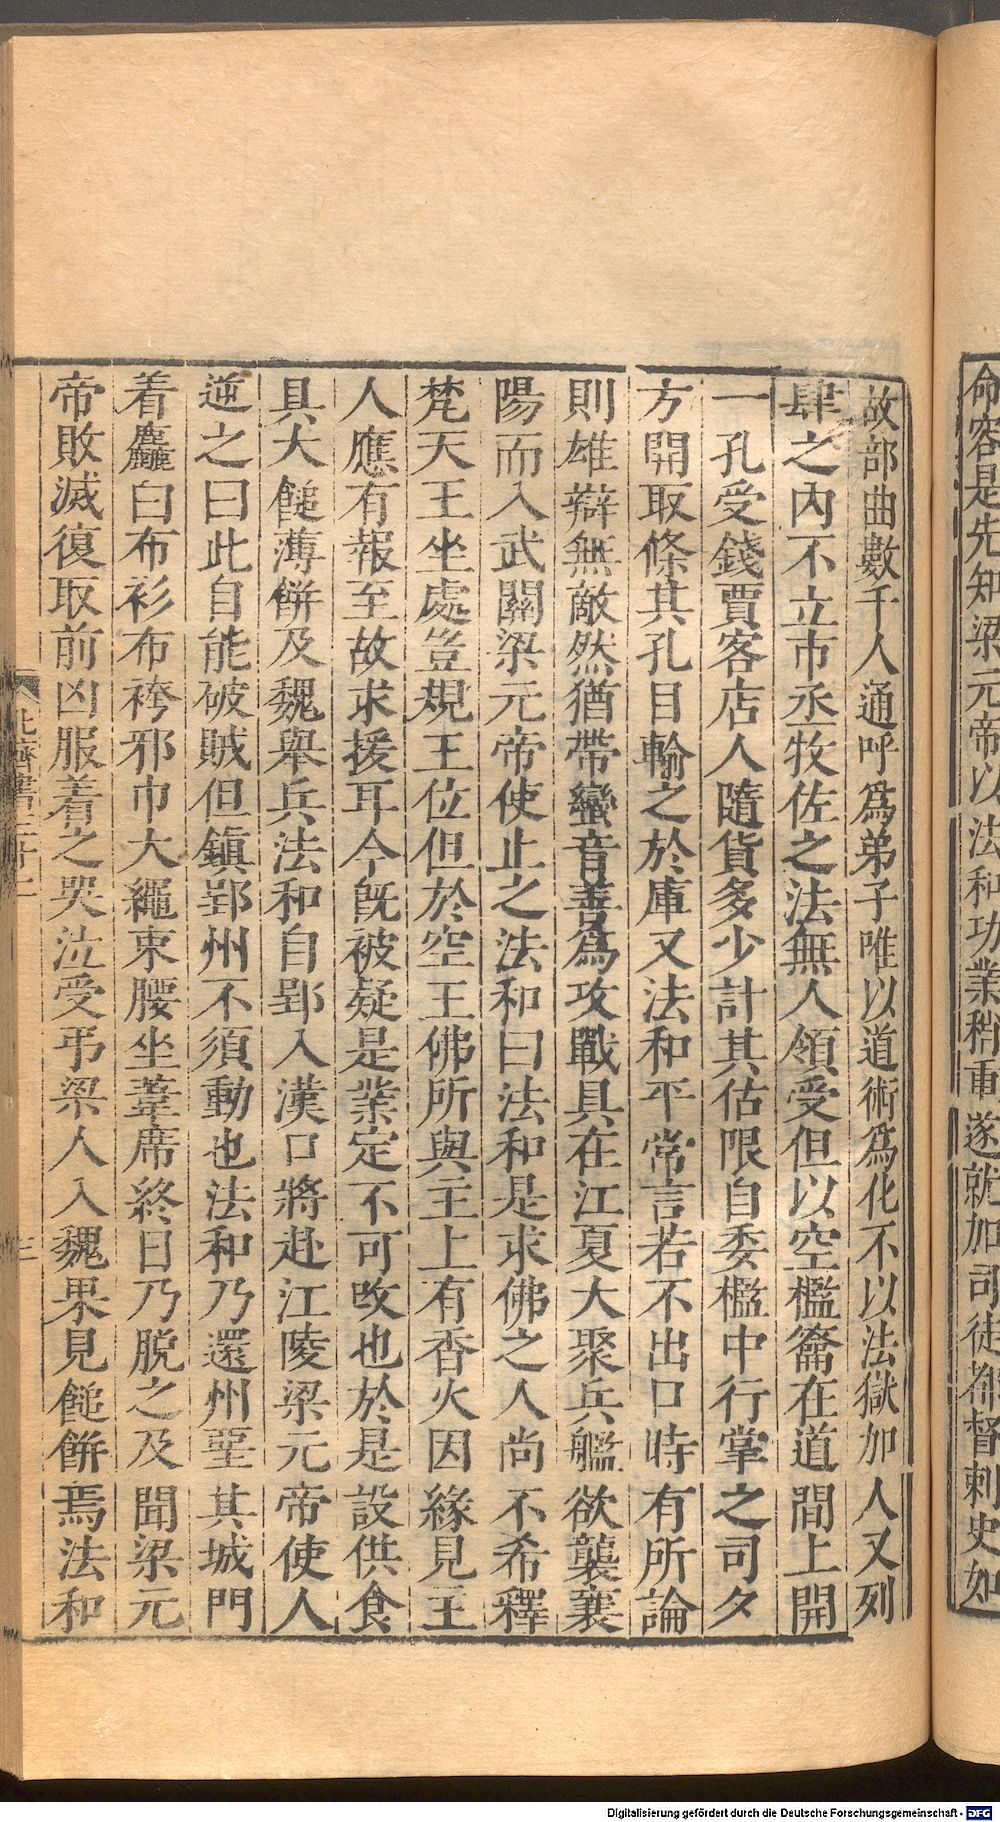 命容是先知梁元帝以法和功業稍重遂就加司徒都督刺史如
故部曲數千人通呼爲弟子唯以道術爲化不以法獄加人又列
肆之內不立市丞牧佐之法無人領受但以空檻籥在道間上開
一孔受錢賈客店人隨貨多少計其估限自委檻中行掌之司夕
方開取條其孔目輸之於庫又法和平常言若不出口時有所論
則雄辯無敵然猶帶蠻音善爲攻戰具在江夏大聚兵艦欲襲襄
陽而入武關梁元帝使止之法和曰法和是求佛之人尚不希釋
梵天王坐處豈規王位但於空王佛所與主上有香火因緣見王
人應有報至故求援耳今旣被疑是業定不可改也於是設供食
具大䭔薄餅及魏舉兵法和自郢入漢口將赴江陵梁元帝使人
逆之曰此自能破賊但鎮郢州不須動也法和乃還州堊其城門
着麤白布衫布袴邪巾大繩束腰坐葦席終日乃脫之及聞梁元
帝敗滅復取前凶服着之哭泣受弔梁人入魏果見䭔餅焉法和
北齊書三十二
三
Digitalisierung gefördert durch die Deutsche Forschungsgemeinschaft - DFG